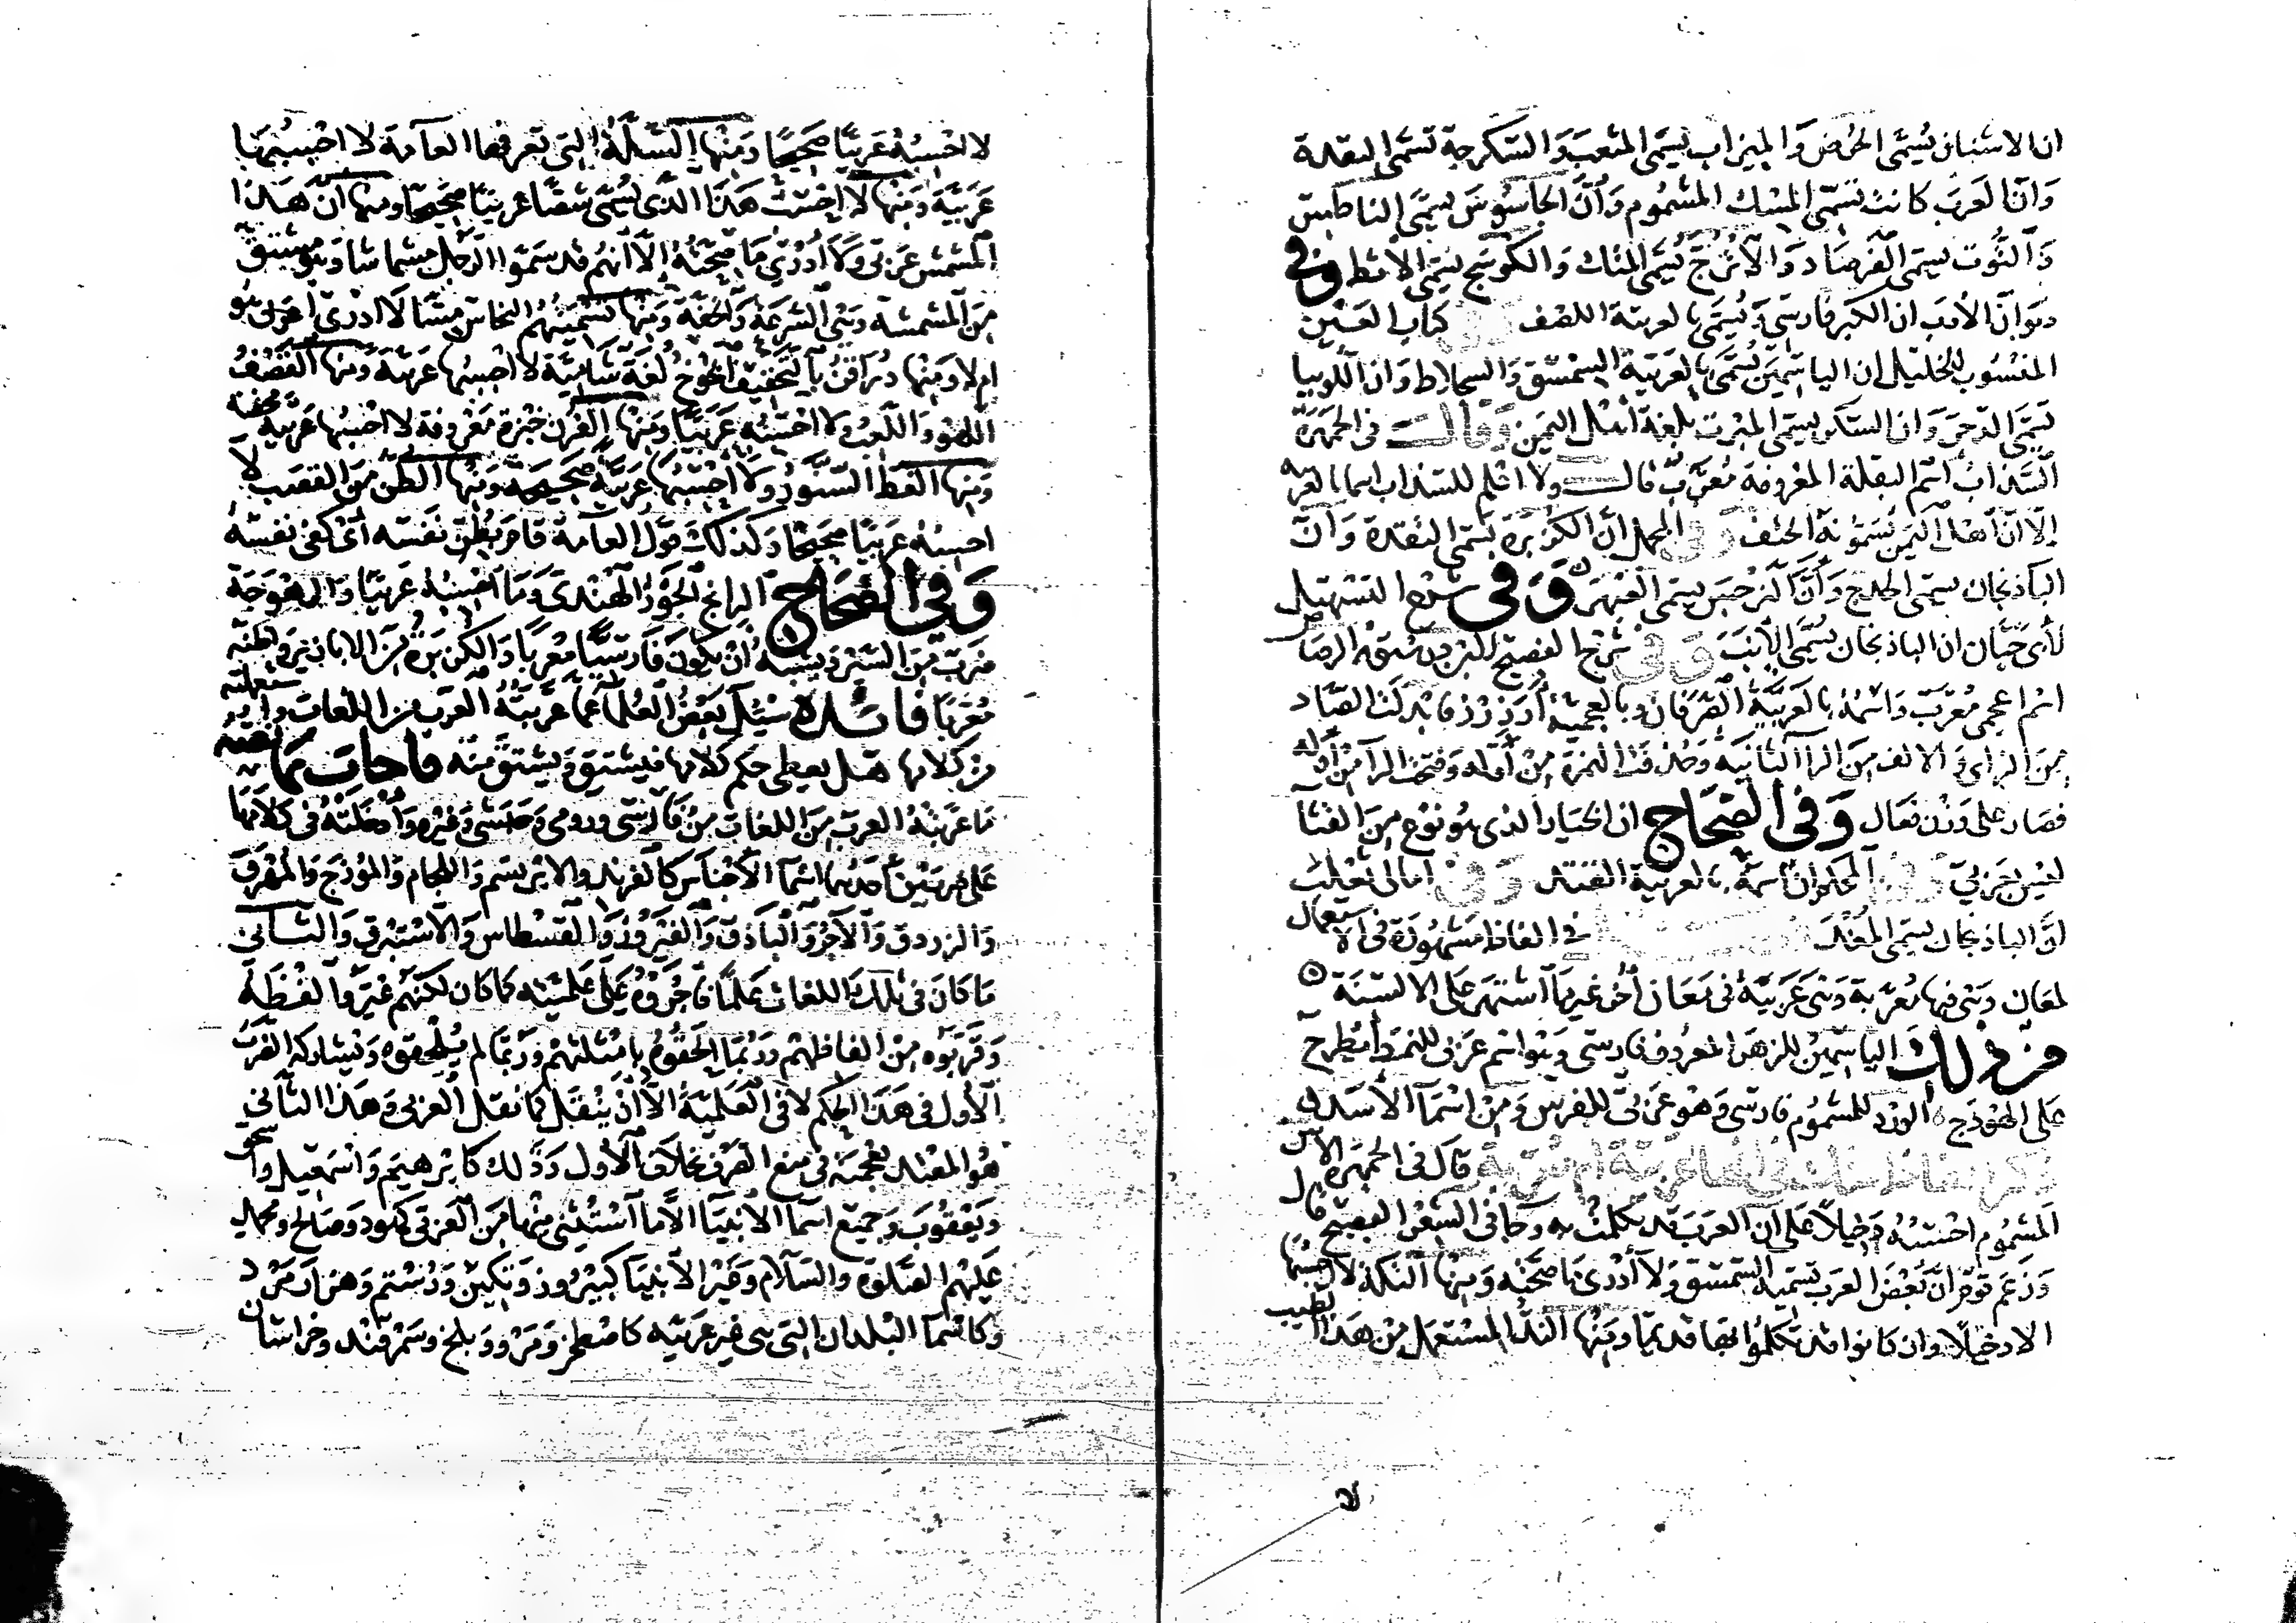 ان الاشنان يسمى الحرض والميزاب يسمى المثعب والسكرجة تسمى الثقدة
وان العرب كانت تسمى المسك المشموم وان الجاسوس يسمى الناطس
وان التوت يسمى الفرصاد والاترج يسمى المتك والكوسج يسمى الاثط وفى
ديوان الادب ان الكبر فارسى ويسمى بالعربية اللصف كتاب العين
المنسوب للخليل ان الياسمين يسمى بالعربية السمسق والسجلاط وان اللوبيا
تسمى الدجر وان السكر يسمى المبرت بلغة اهل اليمن وقال فى الجمهرة
السذاب اسم البقلة المعروفة معرب قال ولا اعلم للسذاب اسما بالعربية
الا ان اهل اليمن يسمونه الحتف وفى المجمل ان الكزبرة تسمى التقدة وان
الباذنجان يسمى الحدج وان النرجس يسمى العبهر وفى شرح التسهيل
لأبى حيان ان الباذنجان يسمى الانب وفى شرح الفصيح الرصاص
اسم اعجمى معرب واسمه بالعربية الصرفان وبالعجمية ارزرز فابدلت الصاد
من الزاى والالف من الرا الثانية وحذفت الهمزة من اوله وفتحت الرا من اوله
فصار على وزن فعال وفى الصحاح ان الخيار الذى هو نوع من القثا
ليس بعربى وفى المحكم ان اسمه بالعربية القثد وفى امالى ثعلب
ان الباذنجان يسمى المغد فى الفاظ مشهورة فى الاستعمال
لمعان وهى فيها معربة وهى عربية فى معان أخر غير ما اشتهر على الالسنة
من ذلك الياسمين للزهر المعروف فارسى وهو اسم عربى للنمط يطرح
على الهودج الورد للمشموم فارسى وهو عربى للفرس ومن اسما الاسد
ذكر الفاظ شك فى انها عربية او معربة قال فى الجمهرة الآس
المشموم احسبه دخيلا على ان العرب قد تكلمت به وجا فى الشعر الفصيح قال
وزعم قوم ان بعض العرب تسميه السمسق ولا أدرى ما صحته ومنها التكة لا احسبها
الا دخيلا وان كانوا قد تكلموا بها قديما ومنها الند المستعمل من هذا الطيب
لا احسبه عربيا صحيحا ومنها السلة التى تعرفها العامة لا احسبها
عربية ومنها لا احسب هذا الذى يسمى شصا عربيا صحيحا ومنها ان هذا
المشمش عربى ولا أدرى ما صحته الا انهم قد سموا الرجل مشماشا وهو مشتق
من المشمشة وهى السرعة والخفة ومنها تسميتهم النحاس مسا لا ادرى اعربى هو
ام لا ومنها دراقن بالتخفيف الخوخ لغة شامية لا احسبها عربية ومنها القصف
اللهو واللعب ولا احسبه عربيا ومنها الفرن خبزة معروفة لا احسبها عربية محضة
ومنها القط السنور ولا احسبها عربية صحيحة ومنها الطن من القصب لا
احسبه عربيا صحيحا وكذلك قول العامة قام بطن نفسه أى كفى نفسه
وفى الصحاح الرانج الجوز الهندى وما احسبه عربيا والرهوجة
ضرب من السير ويشبه ان يكون فارسيا معربا والكزبرة من الابازير واظنه
معربا فائدة سئل بعض العلما عما عربته العرب من اللغات واستعملته
من كلامها هل يعطى حكم كلامها فيشتق ويشتق منه فاجاب بما نصه
ما عربته العرب من اللغات من فارسى ورومى وحبشى وغيره وادخلته فى كلامها
على ضربين احدهما اسما الاجناس كالفرند والابريسم واللجام والموزج والمهرق
والرزدق والآجر والباذق والفيروز والقسطاس والاستبرق والثانى
ما كان فى تلك اللغات علما فاجروه على علميته كما كان لكنهم غيروا لفظه
وقربوه من الفاظهم وربما الحقوه بامثلتهم وربما لم يلحقوه ويشاركه الضرب
الاول فى هذا الحكم لا فى العلمية الا ان ينقل كما نقل العربى وهذا الثانى
هو المعتد بعجمته فى منع الصرف بخلاف الاول وذلك كابرهيم واسمعيل واسحق
ويعقوب وجميع اسما الانبيا الا ما استثنى منها من العربى كهود وصالح ومحمد
عليهم الصلوة والسلام وغير الانبيا كبيروز وتكين ورستم وهزارمرد
وكاسما البلدان التى هى غير عربيه كاصطخر ومرو وبلخ وسمرقند وخراسان